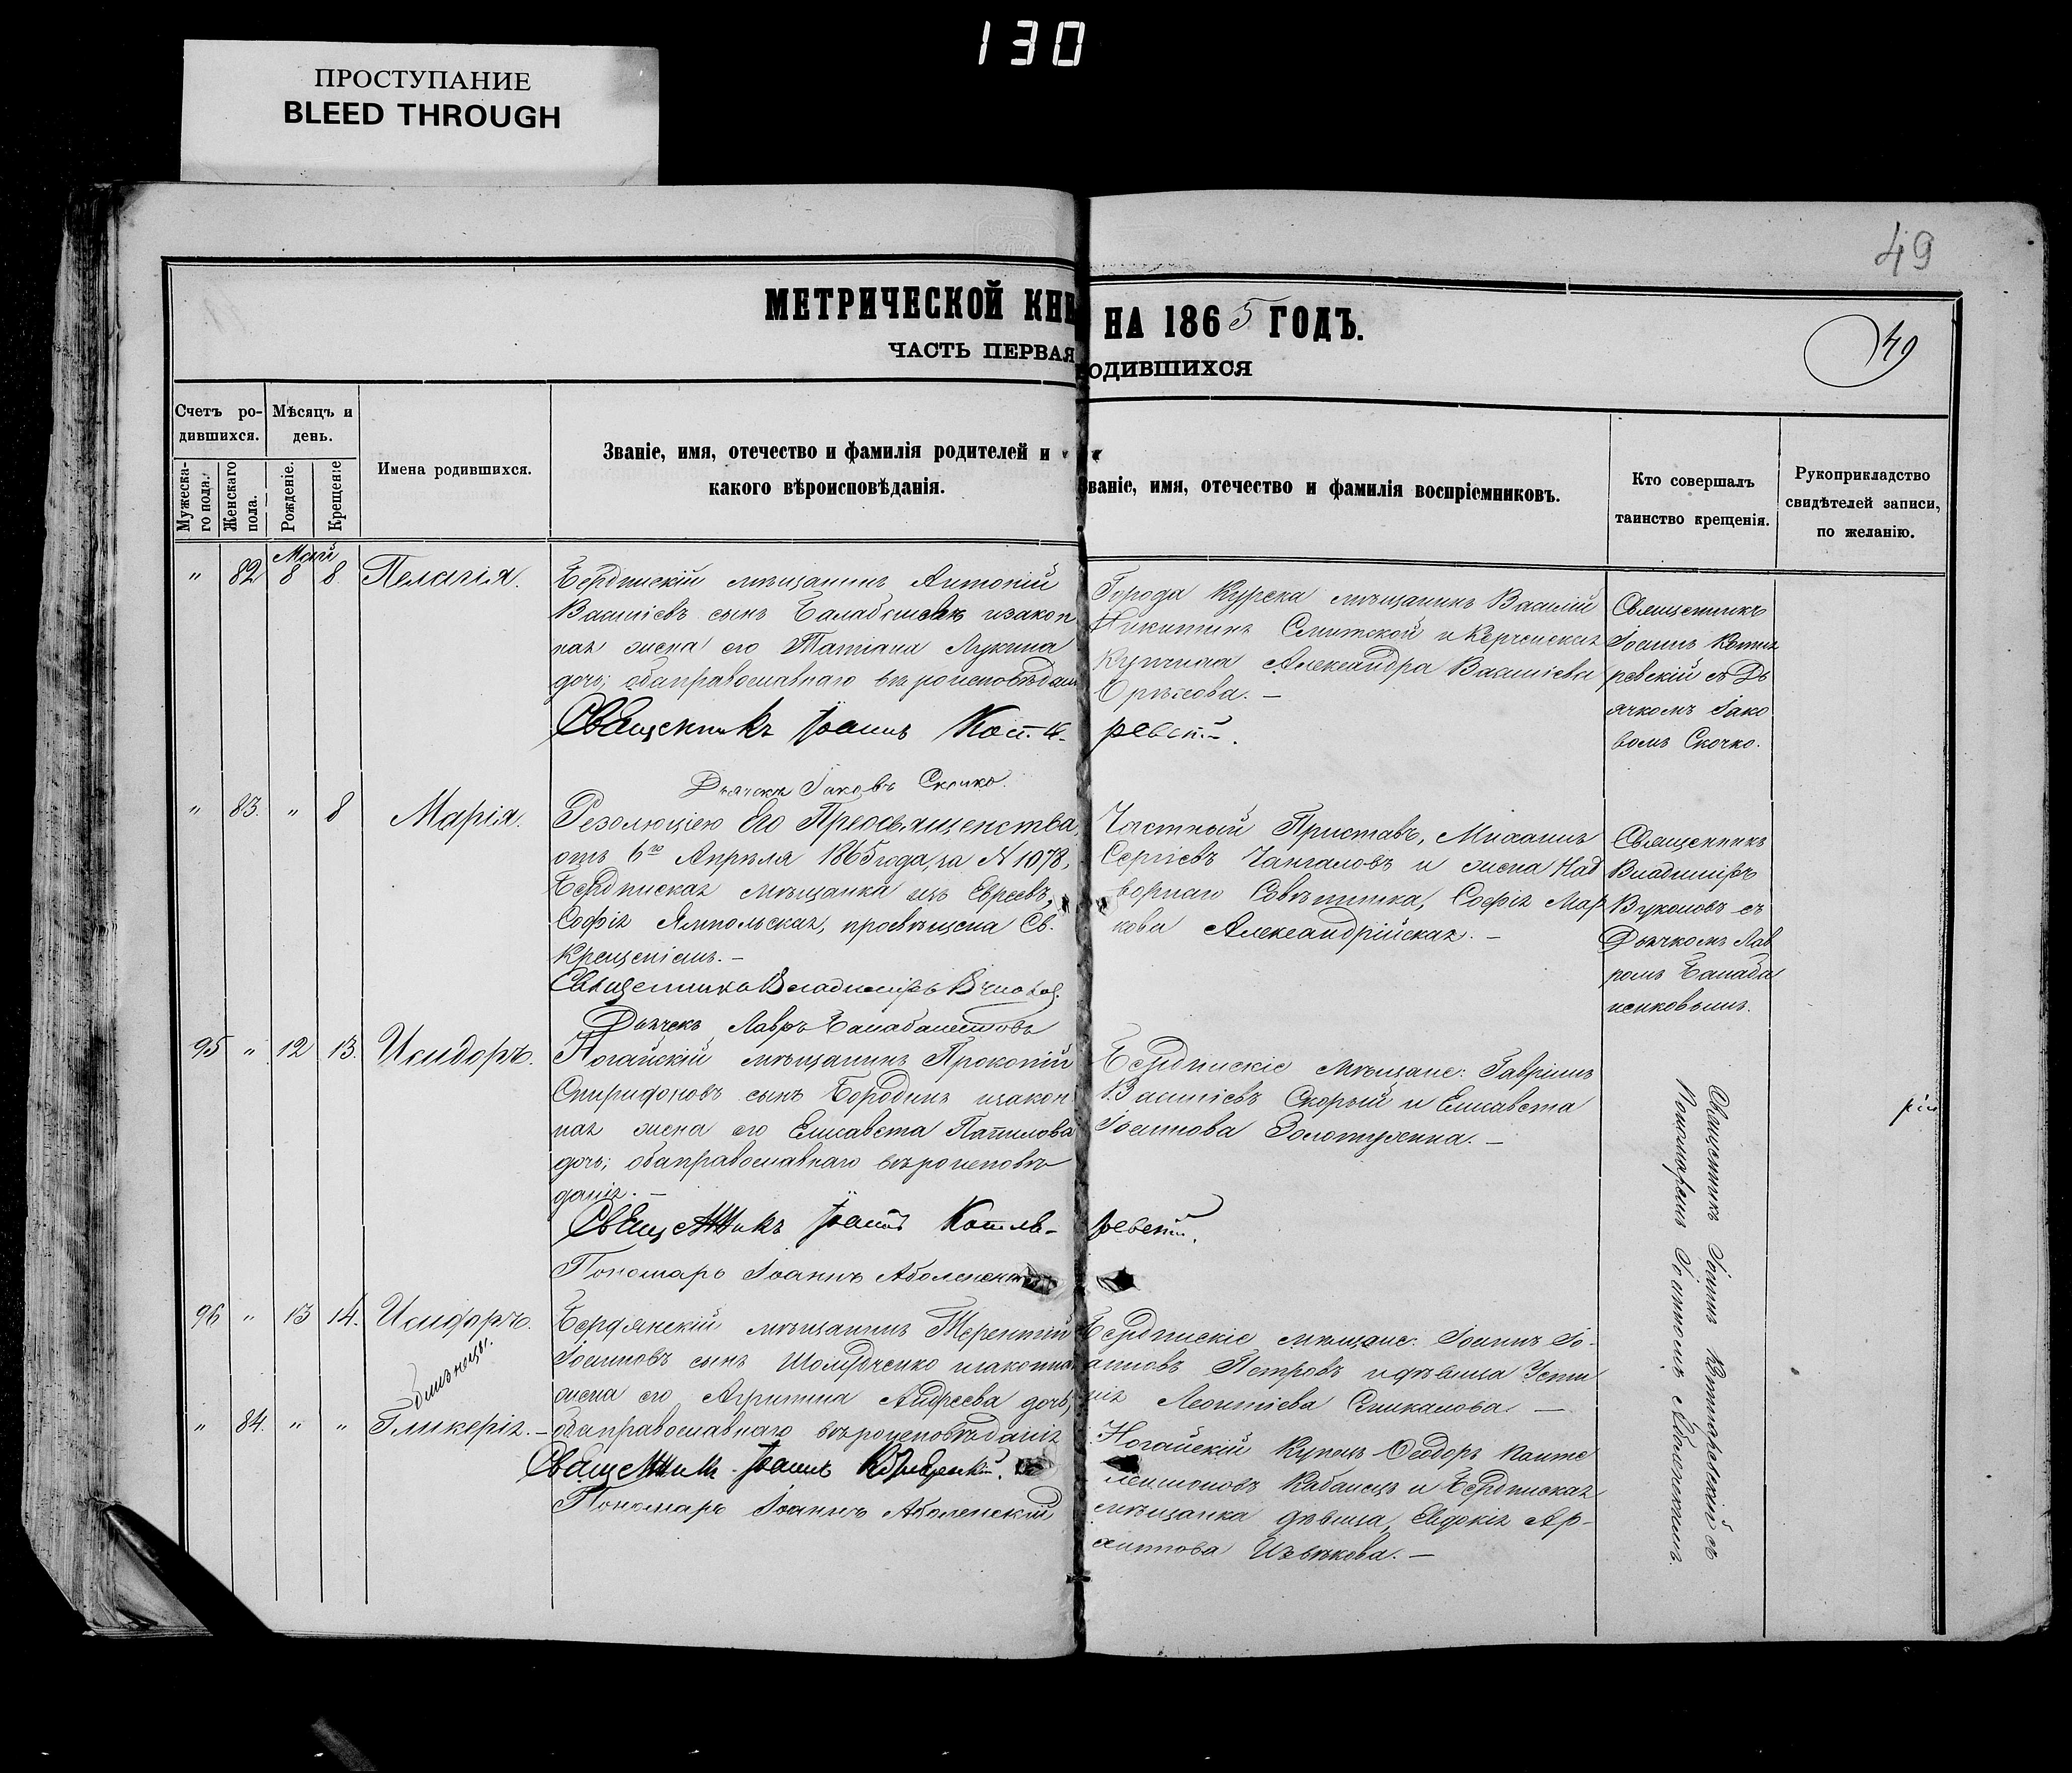 130
ПРОСТУПАНИЕ
BLEED THROUGH
49
МЕТРИЧЕСКОЙ КНИ НА 1865 ГОДЪ.
49
ЧАСТЬ ПЕРВАЯ ОДИВШИХСЯ
Счетъ ро-
дившихся.
Мужеска-
го пола.
Женскаго
пола.
Мѣсяцъ и
день.
Рожденіе.
Крещеніе
Имена родившихся.
Званіе, имя, отечество и фамилія родителей и
какого вѣроисповѣданія.
Званіе, имя, отечество и фамилія воспріемниковъ.
Кто совершалъ
таинство крещенія.
Рукоприкладство
свидѣтелей записи,
по желанію.
Май
" 82 8 8. Пелагія.
Бердянскій мѣщанинъ Антоній
Василіевъ сынъ изакон
ная жена его Татіана Лукина
дочь; обаправославнаго вѣроисповѣданія
Священникъ Іоаннъ Котля-
ревскій.
Дьячекъ Іаковъ Скочко.
Города Курска мѣщанинъ Василій
Никитинъ и Керченская
Купчиха Александра Василіева
Священникъ
Іоаннъ Котля
ревскій съ Дь
ячкомъ Іако
вомъ Скочко.
" 83. " 8 Марія.
Резолюціею Его Преосвященства,
отъ 6го Апрѣля 1865 года, за N 1078,
Бердянская мѣщанка изъ Евреевъ,
Софія Ямпольская, просвѣщена Св.
Крещеніемъ. —
Священникъ Владиміръ Вуколов.
Дьячекъ Лавръ
Частный Приставъ, Михаилъ
Сергіевъ Чангаловъ и жена Над
ворнаго Совѣтника, Софія Мар
кова Александрійская. —
Священникъ
Владиміръ
Вуколовъ съ
Дьячкомъ Лав
ромъ
95 " 12 13. Исидоръ.
Ногайскій мѣщанинъ Прокопій
Спиридоновъ сынъ Бородинъ изакон
ная жена его Елисавета
дочь; обаправославнаго вѣроисповѣ
данія. —
Священникъ Іоаннъ Котля-
ревскій.
Пономарь Іоаннъ Аболенскій
Бердянскіе мѣщане: Гавріилъ
Василіевъ Скорый и Елисавета
Іоаннова Золотухина. —
Священникъ Іоаннъ Котляревскій съ
Пономаремъ Іоанномъ Аболенскимъ.
96 " 13 14. Исидоръ.
близнецы.
Бердянскій мѣщанинъ Терентій
Іоанновъ сынъ изаконная
жена его Агрипина Андреева дочь,
" 84. " " Гликерія. —
обаправославнаго вѣроисповѣданія
Священникъ Іоаннъ Котляревскій.
Пономарь Іоаннъ Аболенскій
Бердянскіе мѣщане: Іоаннъ Іо-
анновъ Петровъ идѣвица Усти
нія Леонтіева —
Ногайскій Купецъ Ѳеодоръ Панте
леимоновъ Кабанецъ и Бердянская
мѣщанка дѣвица, Евдокія Ар-
хиппова —